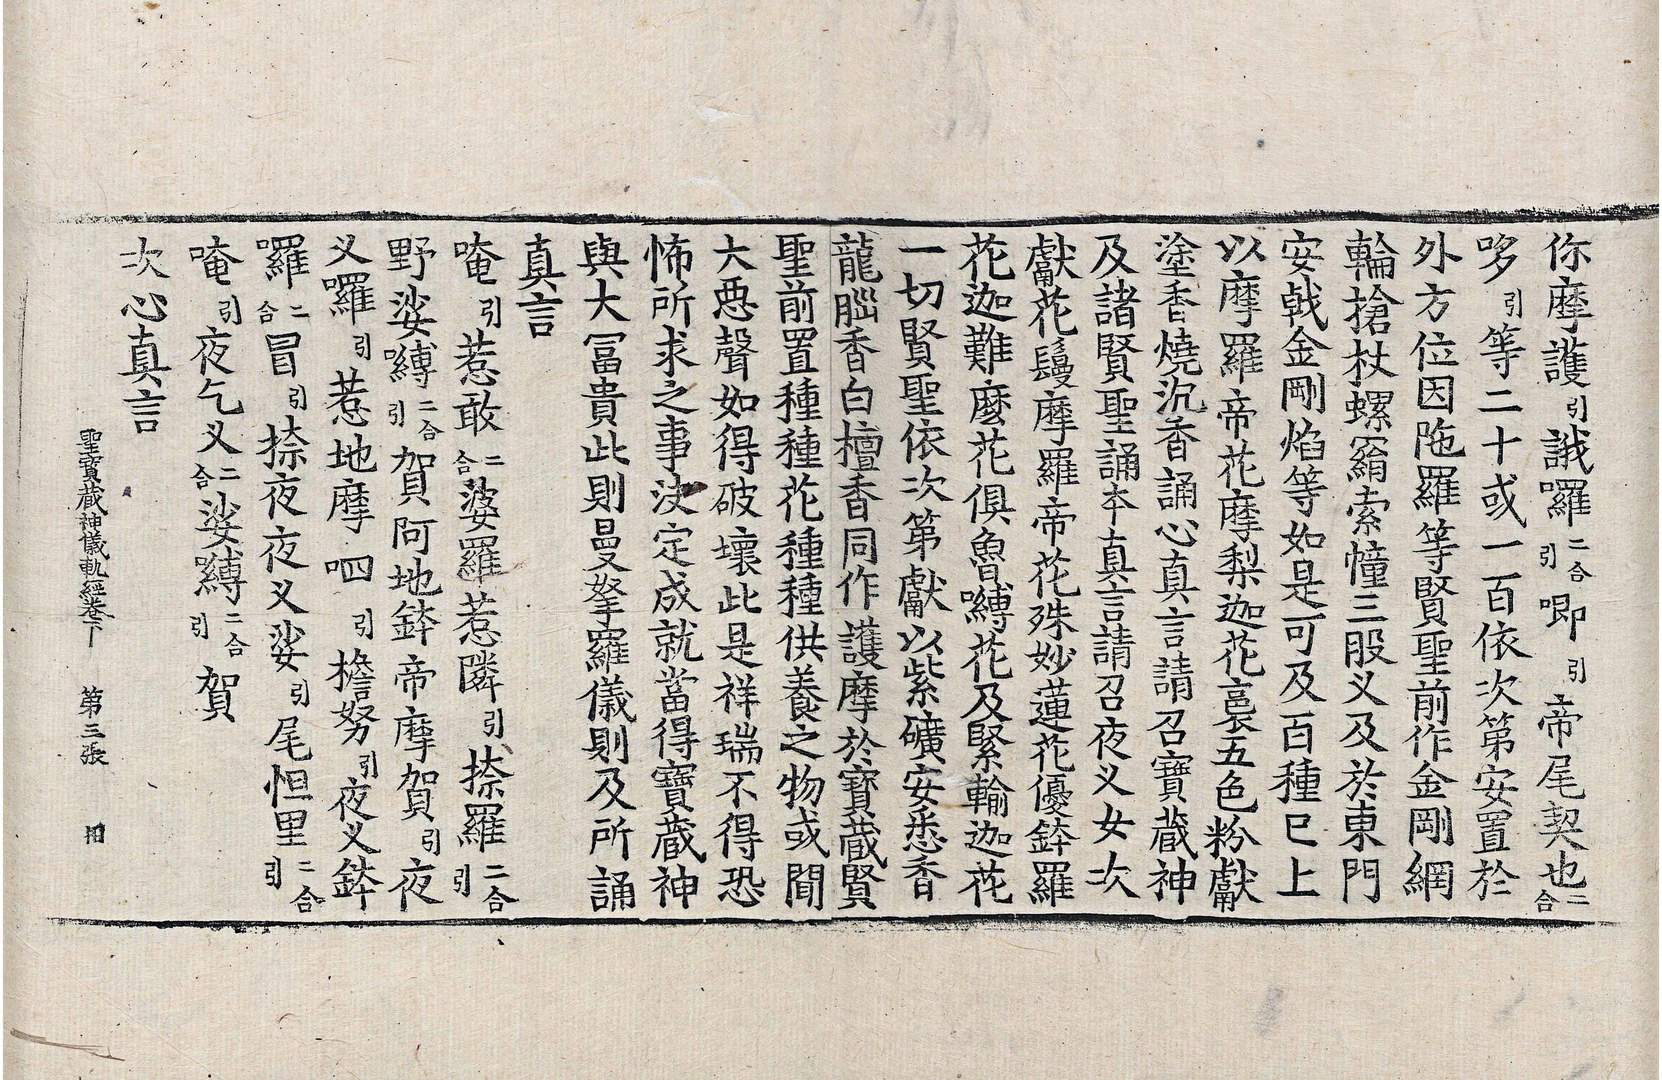 你摩護引誐囉二合引唧引帝尾契也二合
哆引等二十或一百依次第安置於
外方位因陁羅等賢聖前作金剛網
輪搶杖螺罥索幢三股义及於東門
安戟金剛焰等如是可及百種已上
以摩羅帝花摩梨迦花裛五色粉獻
塗香燒沉香誦心真言請召寶藏神
及諸賢聖誦本真言請召夜义女次
獻花鬘摩羅帝花殊妙蓮花優鉢羅
花迦難麼花俱魯嚩花及緊輸迦花
一切賢聖依次第獻以紫礦安悉香
龍腦香白檀香同作護摩於寶藏賢
聖前置種種花種種供養之物或聞
大惡聲如得破壞此是祥瑞不得恐
怖所求之事決定成就當得寶藏神
與大冨貴此則曼拏羅儀則及所誦
真言
唵引惹敢二合婆羅惹隣引捺羅二合引
野娑嚩二合引賀阿地鉢帝摩賀引夜
义囉引惹地摩呬引擔努引夜义鉢
囉二合冒引捺夜夜义娑引尾怛里二合引
唵引夜乞义二合娑嚩二合引賀
次心真言
聖寶藏神儀軌經卷下　第三張